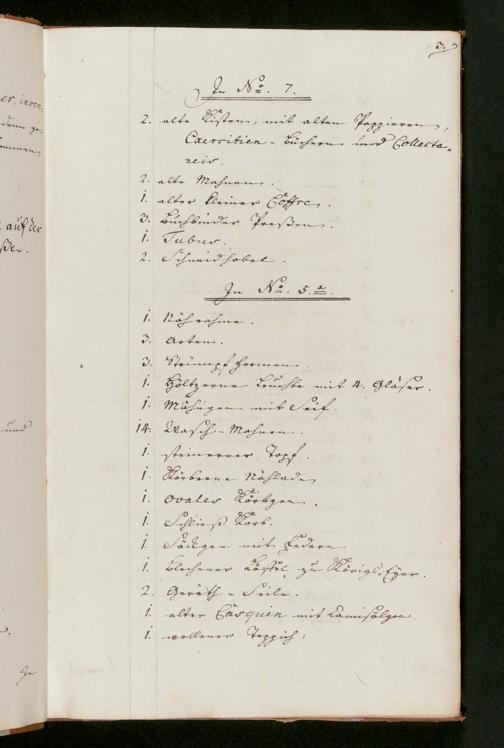 3.
er, inven
auf der
In No. 7.
2. alte Kisten, mit alten Pappieren,
Exercitien-Büchern und Collecta-
neis.
2. alte Mahnen.
1. alter kleiner Coffre.
3. Buchbinder Preßen.
1. Tubus.
2. Schneidhobel.
In No. 5.a.
1. Nährahme.
3. Arten.
3. Strümpf Formen.
1. Höltzerne Leuchte mit 4. Gläser.
1. mit Seif.
14. Wasch-Mahnen.
1. steinerner Topf.
1. Nählade
1. ovales Körbgen.
1. Schließ Korb.
1. Säckgen mit Federn
1. blecherner zu Eyer.
2. Geräth-Seile.
1. alter Casquin mit Camisölgen
1. wollener Teppich.
und
In